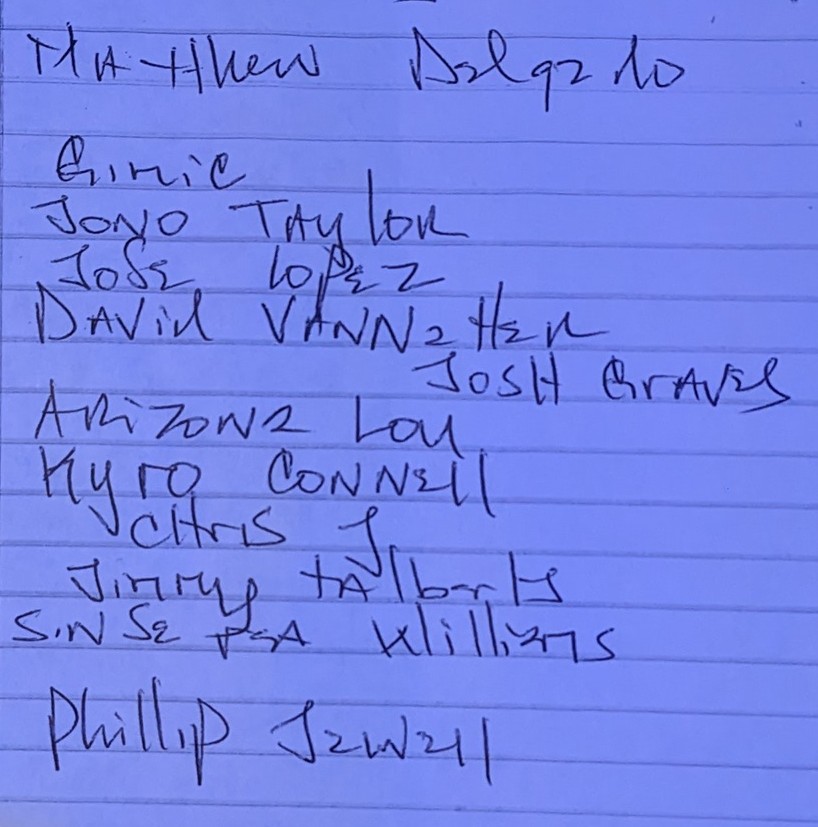 Matthew Delgado
Gimic
Jono Taylor
Jose Lopez
David Vannether
Josh Graves
Arizona Lou
Kyro Connell
Chris J
Jimmy Talbarts
Williams
Phillip Jewell